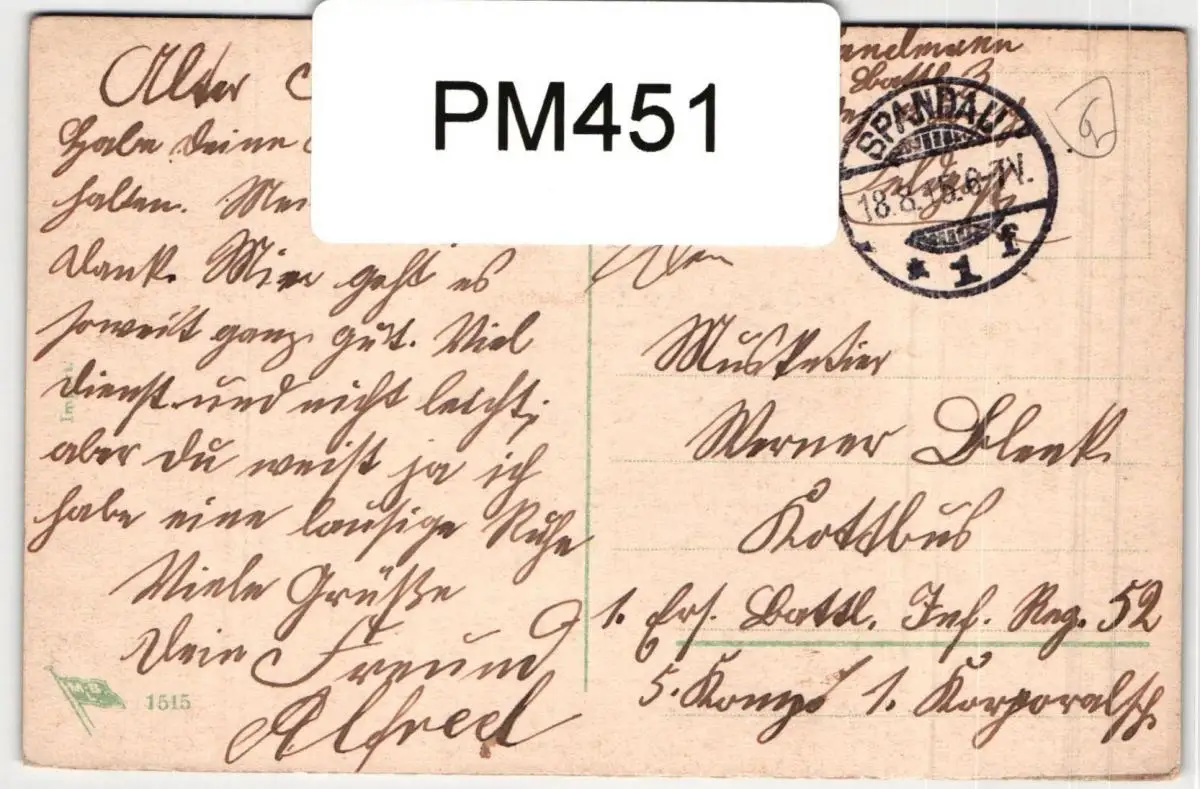 Alter
habe deine
halten.
Dank. Mir geht es
soweit ganz gut. Viel
Dienst und nicht leicht,
aber du weist ja ich
habe eine lausige Ruhe
Viele Grüße
Dein Freund
Alfred
1515
PM451
Battl. 3
SPANDAU
18.8.15.6-7N.
* 1 f
Den
Musketier
Werner Blenk
Kottbus
1. Ers. Battl. Inf. Reg. 52
5. Komp 1. Korporalsch.